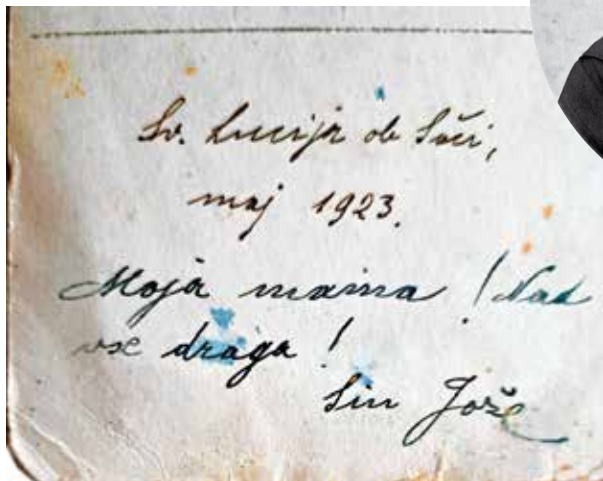 Sv. Lucija ob Soči,
maj 1923.
Moja mama! Nad
vse draga!
Sin Jože